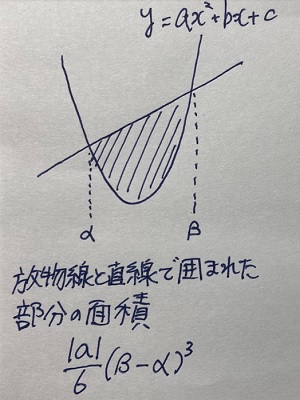 y=ax²+bx+c
α β
放物線と直線で囲まれた
部分の面積
|a|/6 (β-α)³